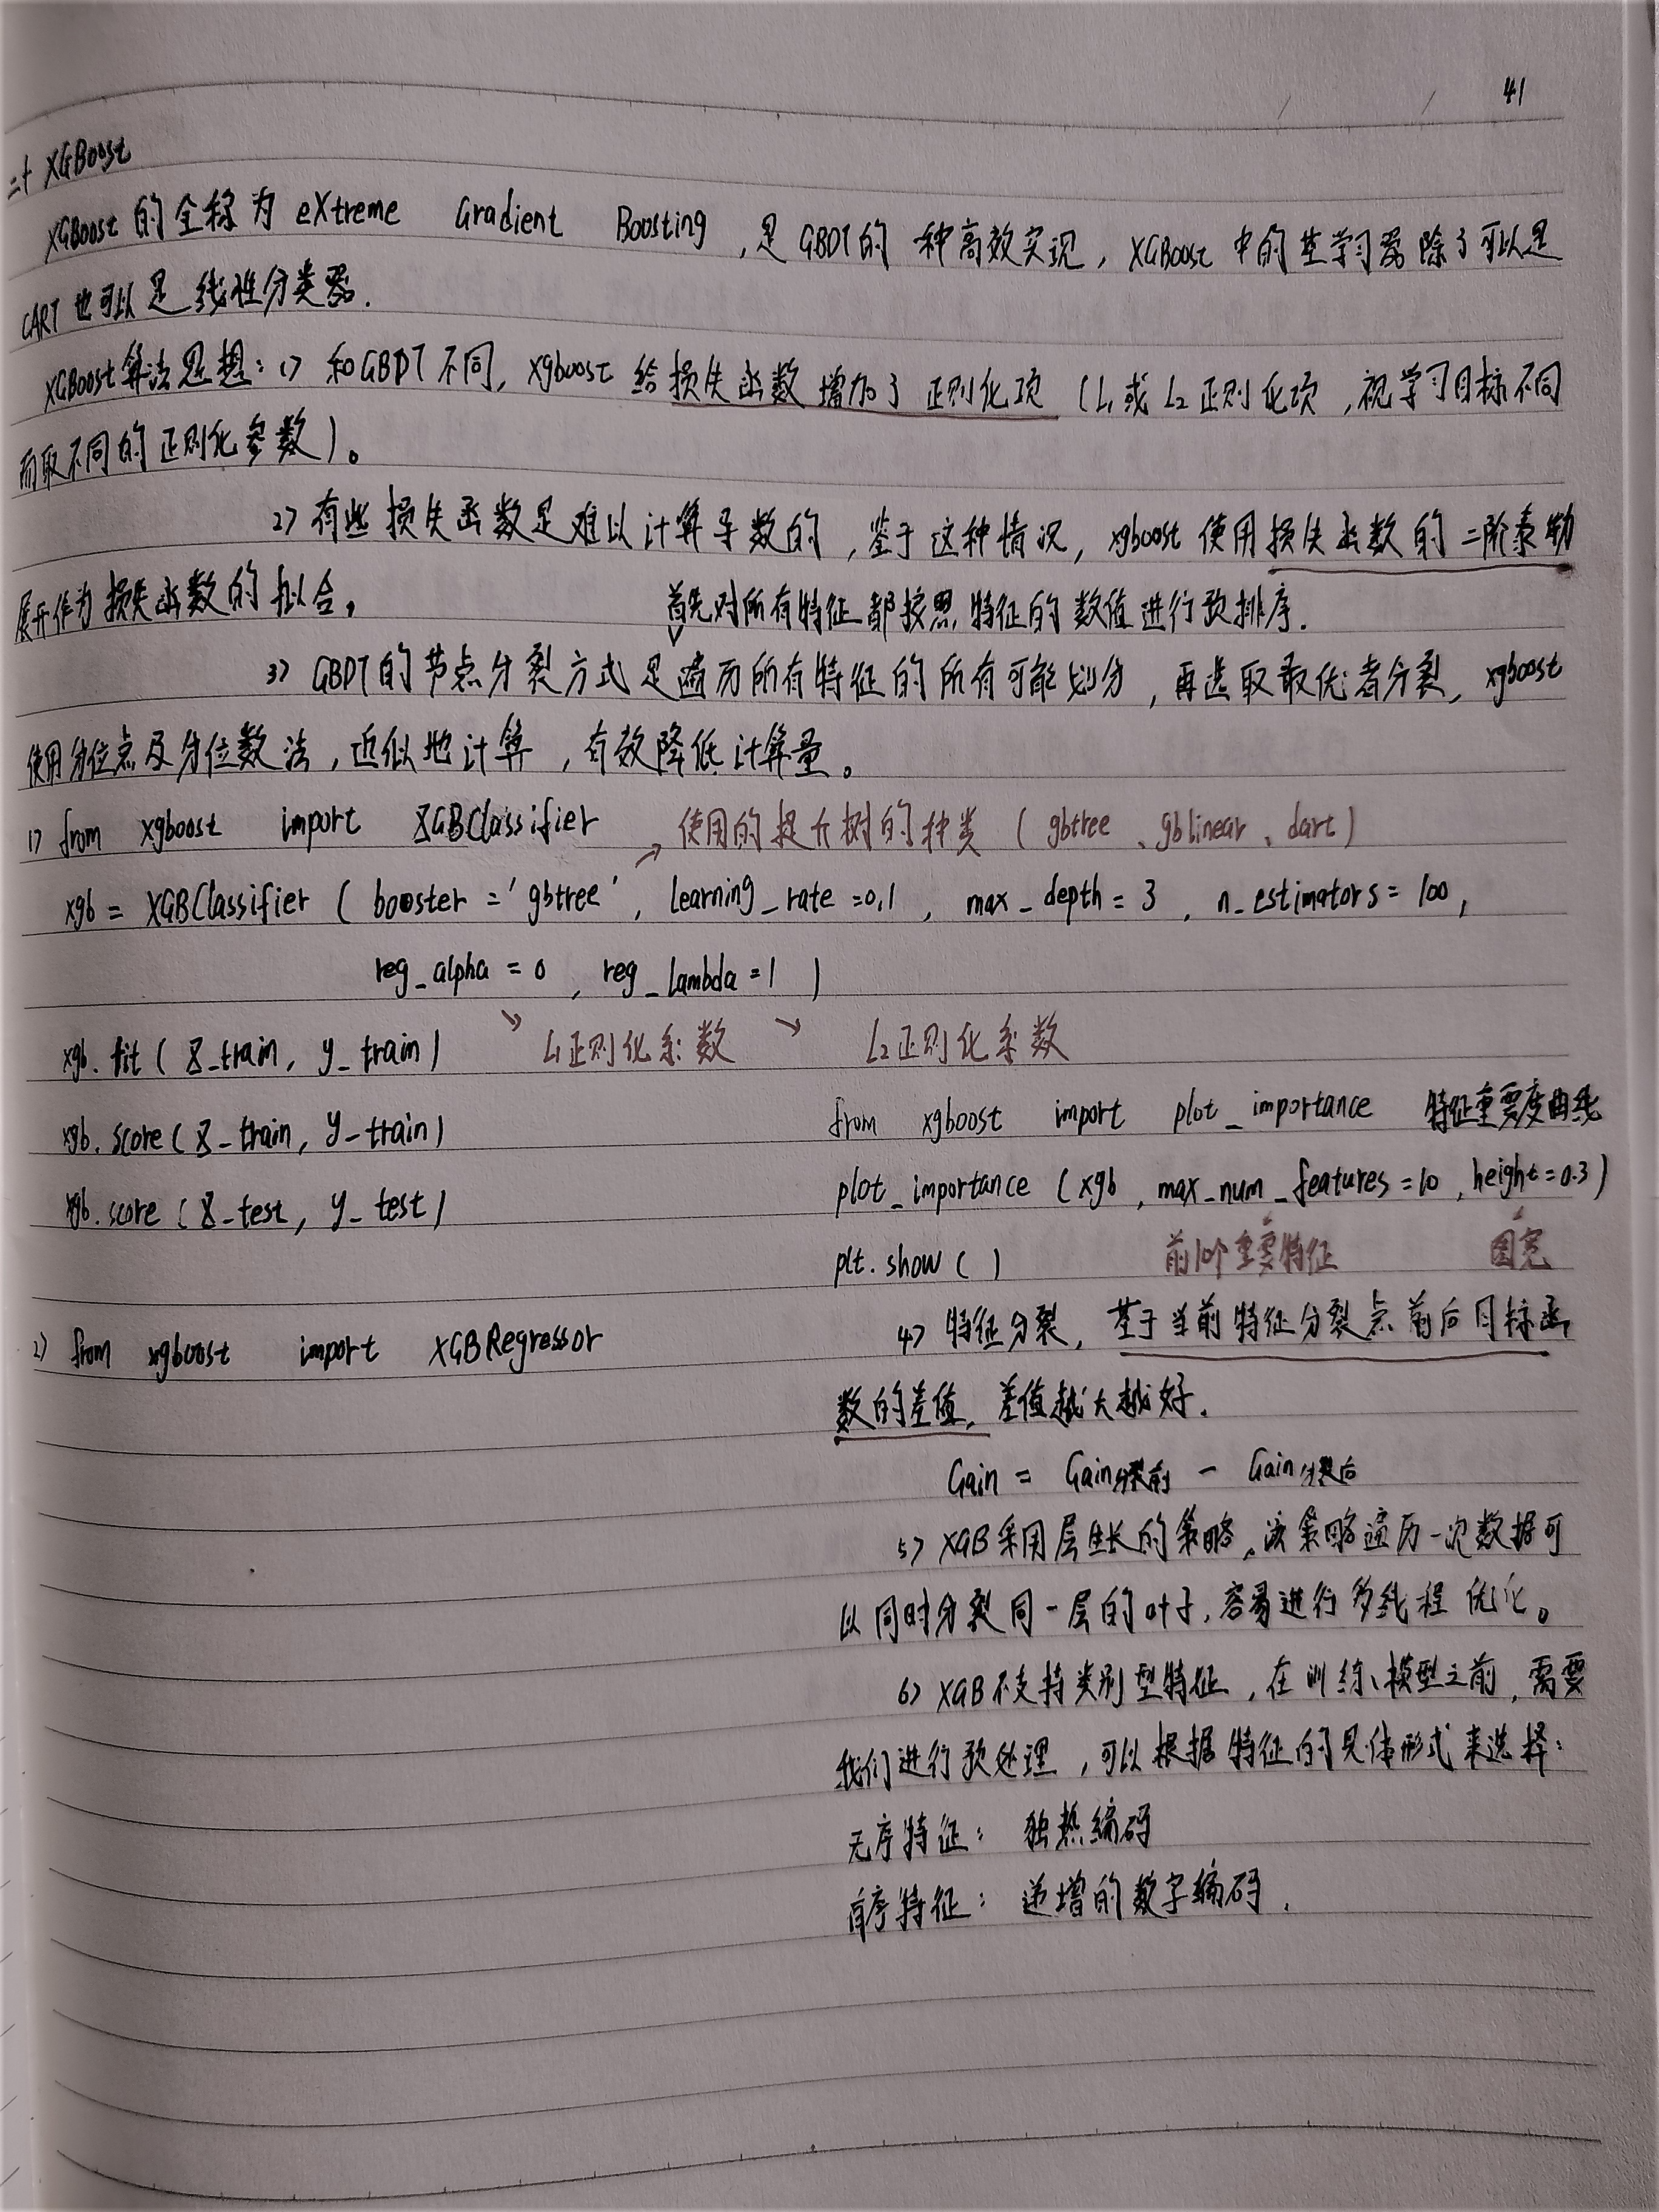 41
二十 XGBoost
XGBoost 的全称为 eXtreme Gradient Boosting ,是 GBDT的一种高效实现, XGBoost 中的基学习器除了可以是
CART 也可以是线性分类器.
XGBoost算法思想: 1) 和GBDT不同, xgboost 给损失函数增加了正则化项 (L1或 L2 正则化项 ,视学习目标不同
而取不同的正则化参数)。
2) 有些损失函数是难以计算导数的 ,鉴于这种情况, xgboost 使用损失函数的二阶泰勒
展开作为损失函数的拟合,
首先对所有特征都按照特征的数值进行预排序.
3) GBDT的节点分裂方式是遍历所有特征的所有可能划分 ,再选取最优者分裂, xgboost
使用分位点及分位数法 ,近似地计算 ,有效降低计算量。
1) from xgboost import XGBClassifier
使用的提升树的种类 ( gbtree 、gblinear 、dart )
xgb = XGBClassifier ( booster = 'gbtree' , learning_rate =0.1 , max_depth = 3 , n_estimators = 100 ,
reg_alpha = 0 , reg_lambda = 1 )
xgb.fit ( X_train, y_train) L1正则化系数 L2正则化系数
xgb.score ( X_train, y_train)
xgb.score ( X_test, y_test)
2) from xgboost import XGBRegressor
from xgboost import plot_importance 特征重要度曲线
plot_importance (xgb , max_num_features =10 , height=0.3 )
plt.show ( ) 前10个重要特征 图宽
4) 特征分裂, 基于当前特征分裂点前后目标函
数的差值, 差值越大越好.
Gain = Gain分裂前 - Gain分裂后
5) XGB采用层生长的策略,该策略遍历一次数据可
以同时分裂同一层的叶子,容易进行多线程优化。
6) XGB不支持类别型特征 ,在训练模型之前,需要
我们进行预处理 ,可以根据特征的具体形式来选择:
无序特征: 独热编码
有序特征: 递增的数字编码.